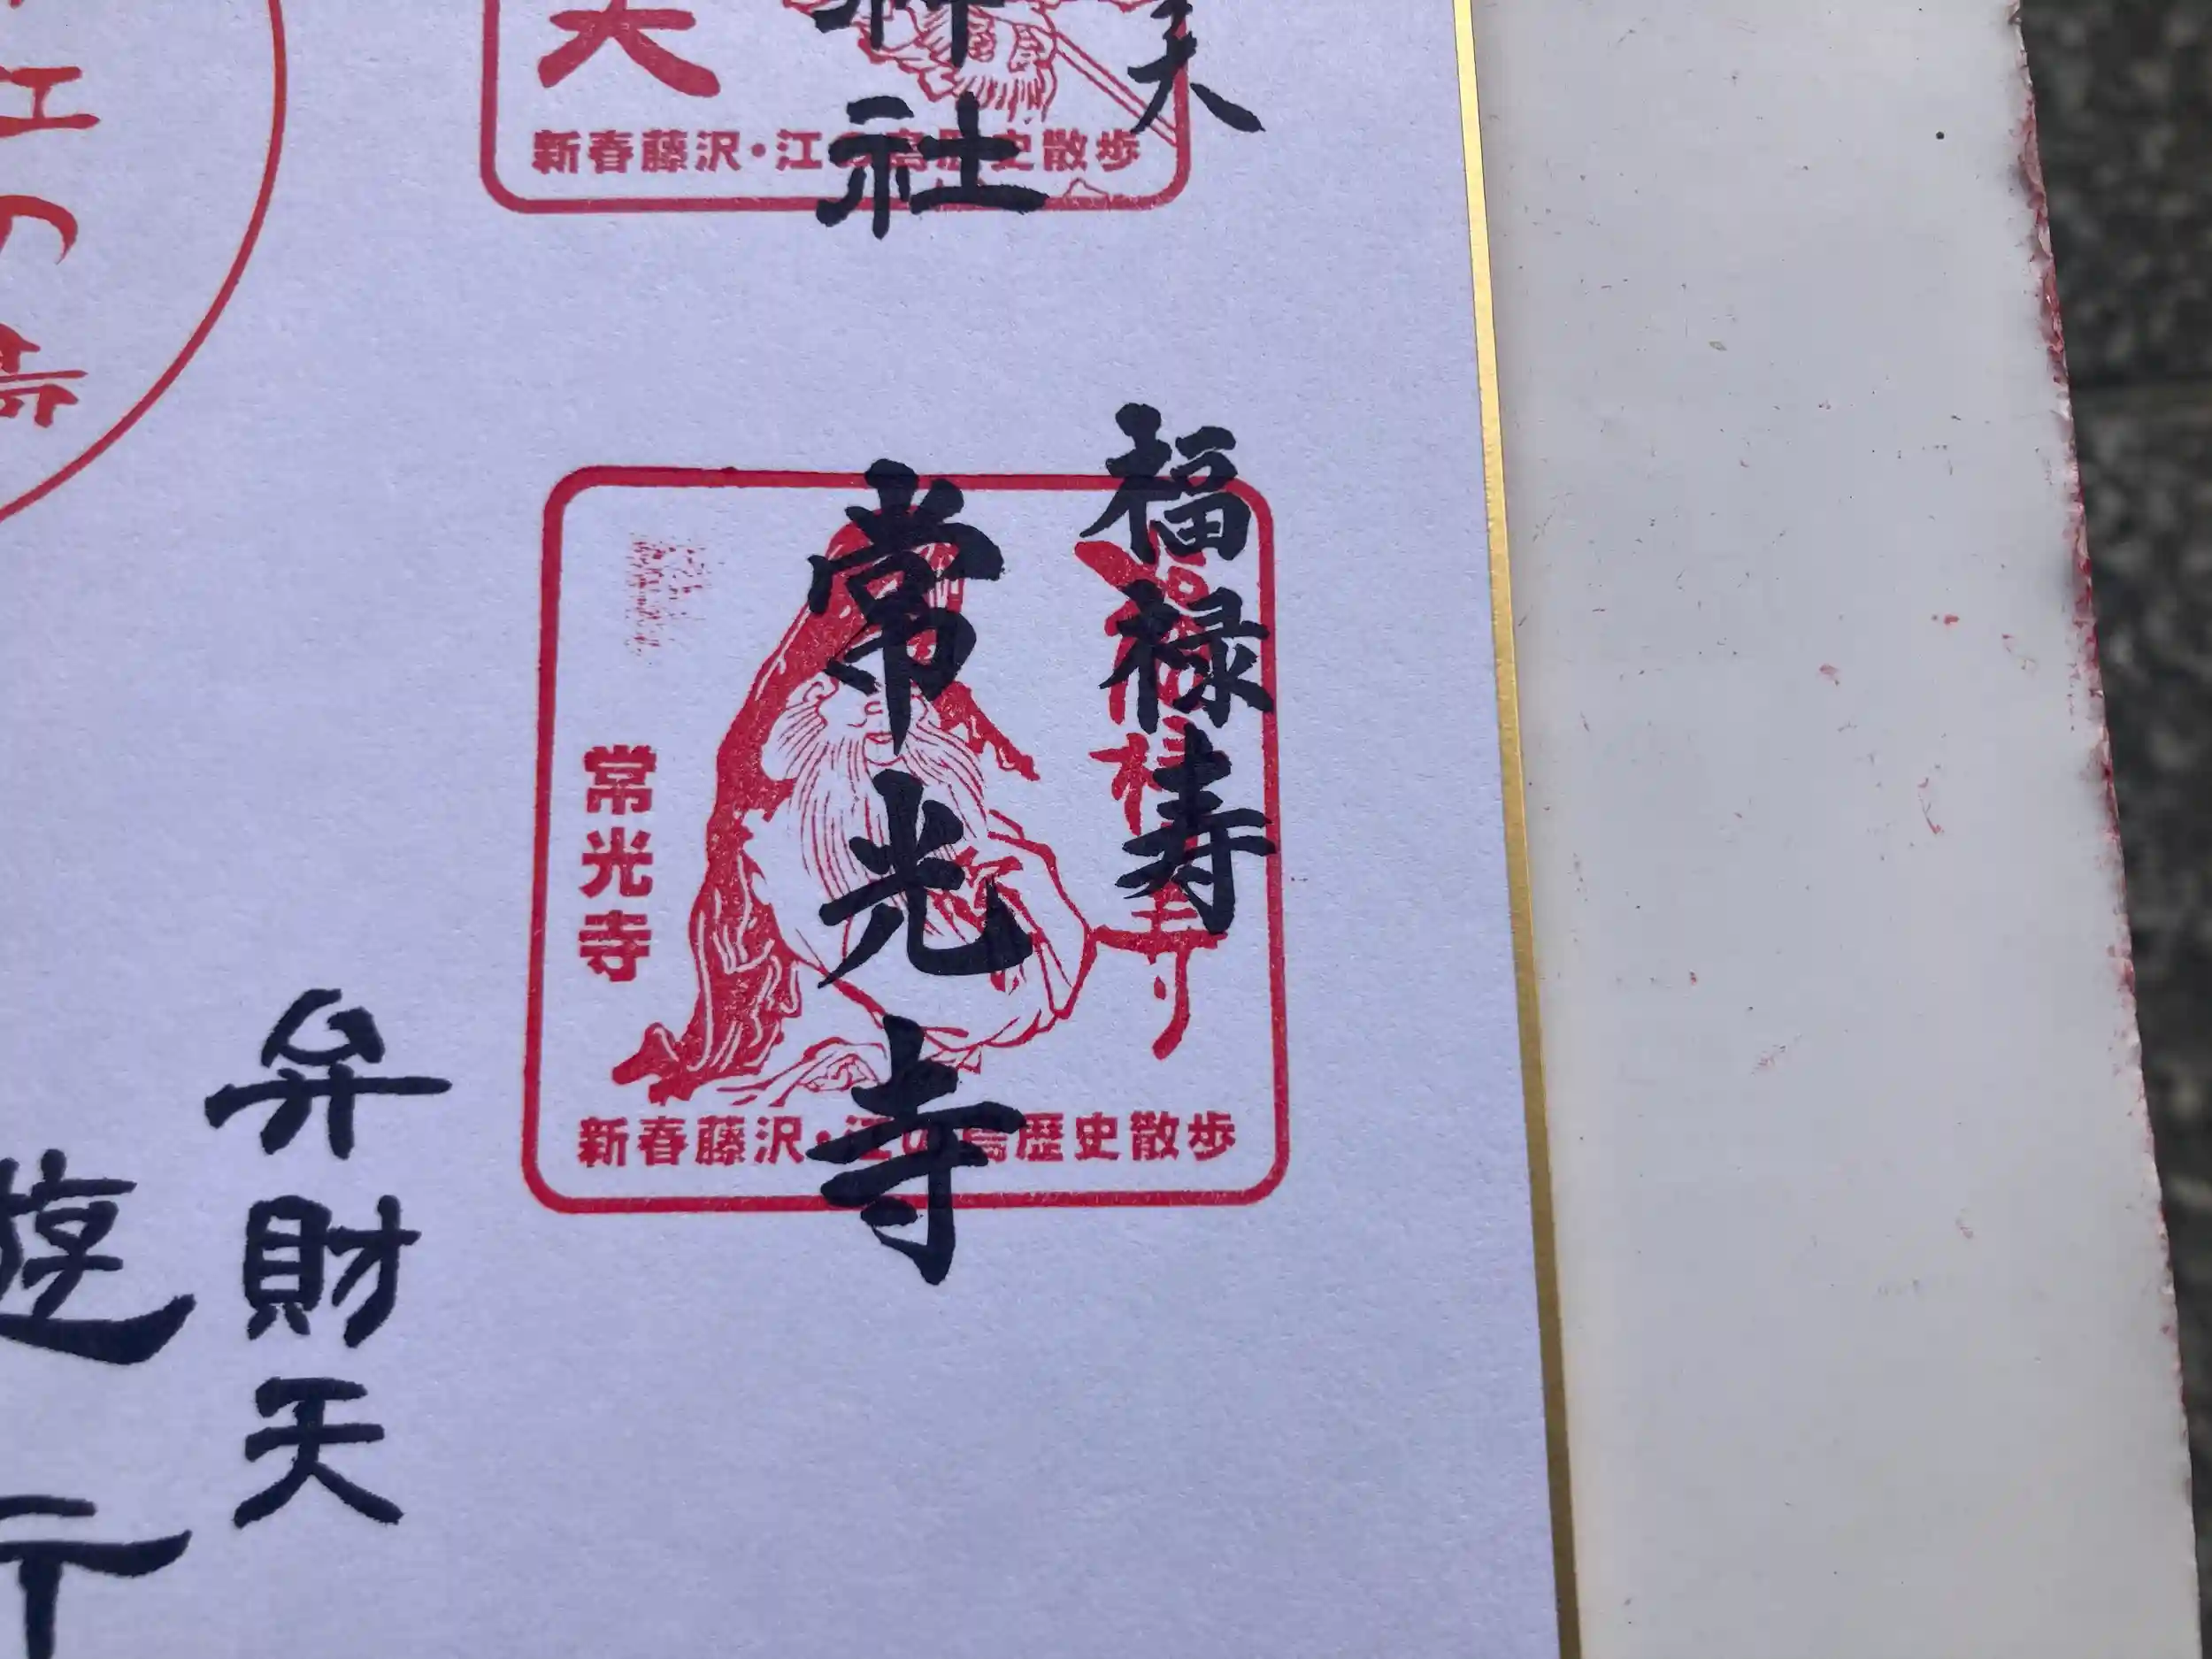 江の島
天
新春藤沢・江の島歴史散歩
社
福禄寿
常光寺
福禄寿
常光寺
新春藤沢・江の島歴史散歩
弁財天
遊行